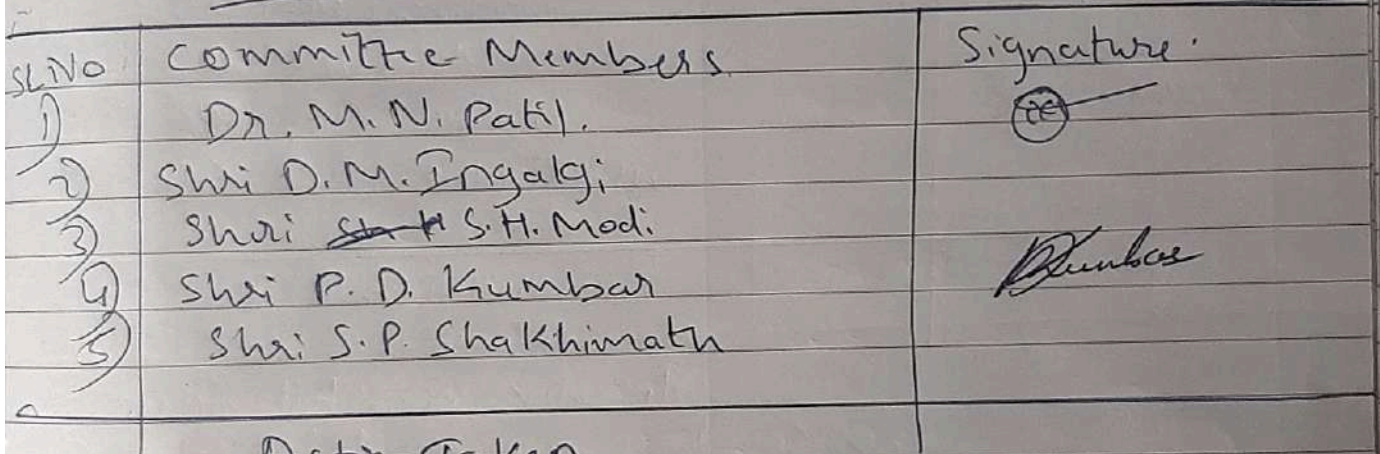 SL.NO Committee Members Signature.
1) Dr. M. N. Patil.
2) Shri D. M. Ingalgi
3) Shri S. H. Modi
4) Shri P. D. Kumbar Kumbar
5) Shri S. P. Shakhimath
Taken